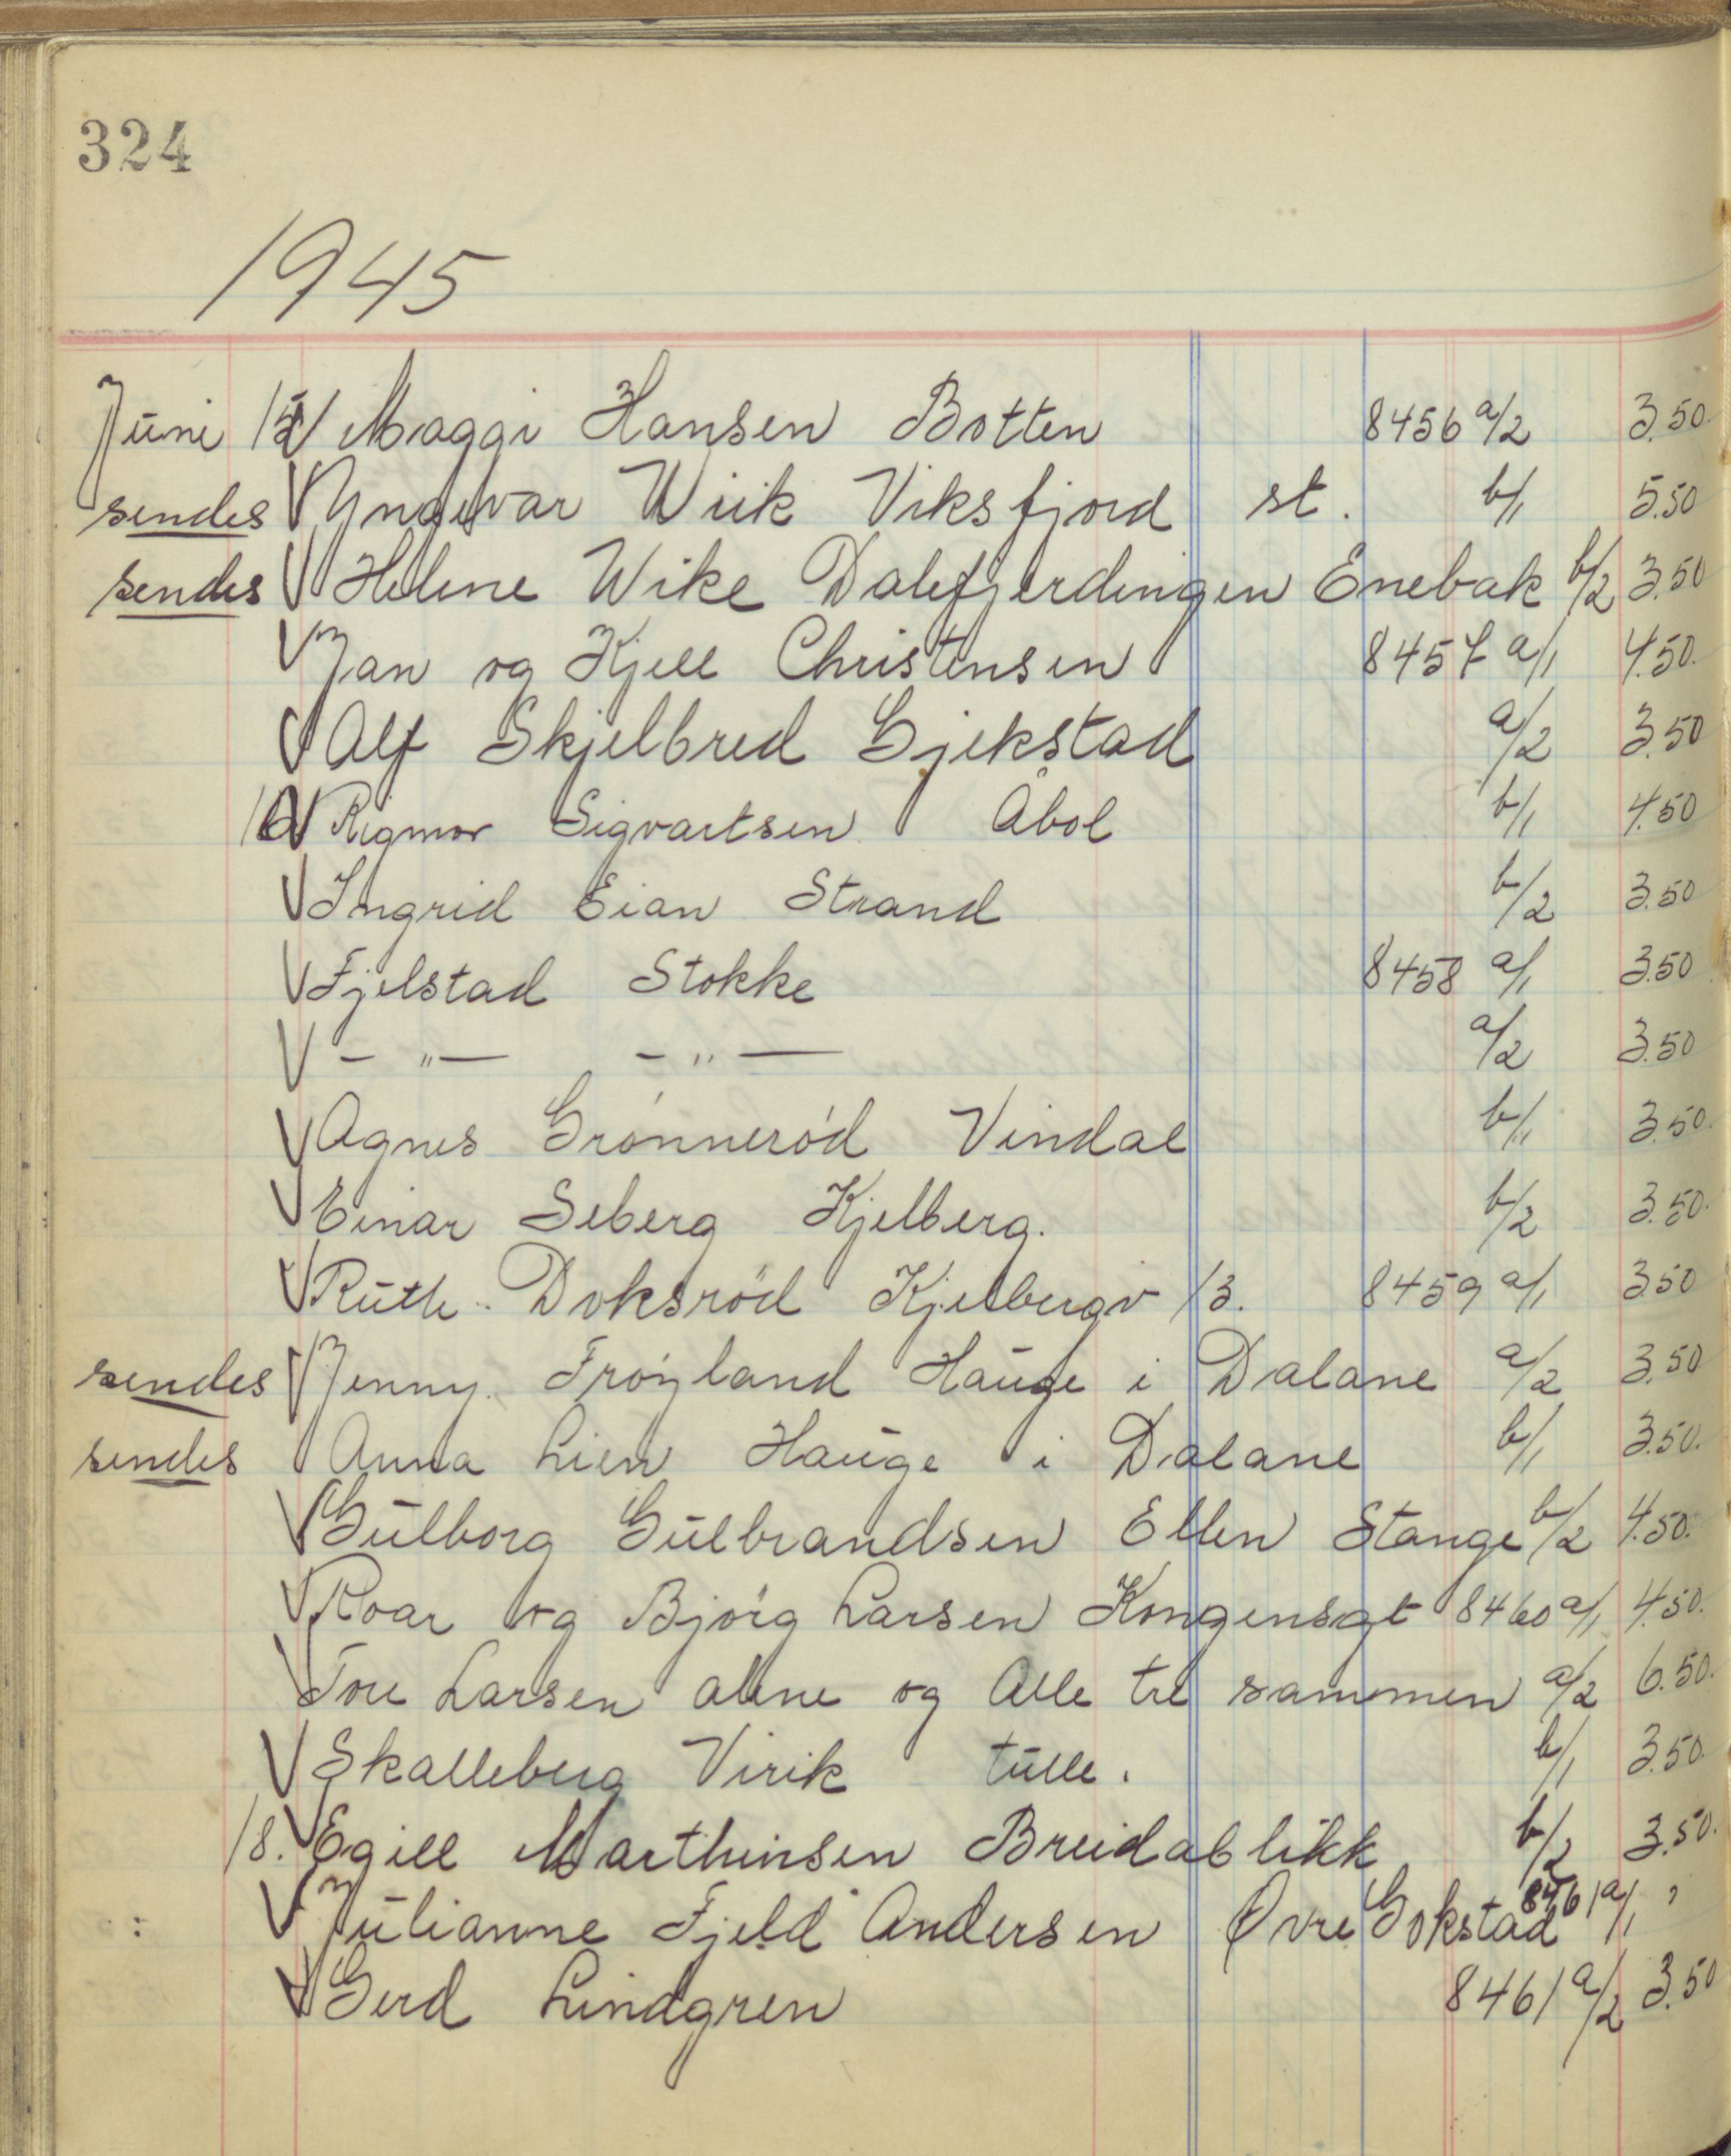 324
1945
Juni 15 V Maggi Hansen Botten 8456 a/2 3.50.
sendes V Yngvar Wiik Viksfjord st. b/1 5.50
sendes V Helene Wike Dalefjerdingen Enebak b/2 3.50
V Jan og Kjell Christensen 8457 a/1 4.50.
V Alf Skjelbred Gjekstad a/2 3.50
16 V Rigmor Sigvartsen Åbol b/1 4.50
V Ingrid Eian Strand b/2 3.50
V Fjelstad Stokke 8458 a/1 3.50
V - " — - " — a/2 3.50
V Agnes Grónneród Vindal b/1 3.50.
V Einar Seberg Kjelberg. b/2 3.50.
V Ruth Doksröd Kjelbergv 13. 8459 a/1 3.50
sendes V Jenny Tróyland Hauge i Dalane a/2 3.50
sendes Anna Lien Hauge i Dalane b/1 3.50.
V Gulborg Gulbrandsen Ellen Stange b/2 4.50.
V Roar og Bjórg Larsen Kongensgt 8460 a/1 4.50.
Tore Larsen alene og Alle tre sammen a/2 6.50.
V Skalleberg Virik tulle. b/1 3.50.
18. V Egill Marthinsen Breidablikk b/2 3.50.
V Julianne Fjeld Andersen Øvre Gokstad 8461 a/1 "
V Gerd Lindgren 8461 a/2 3.50